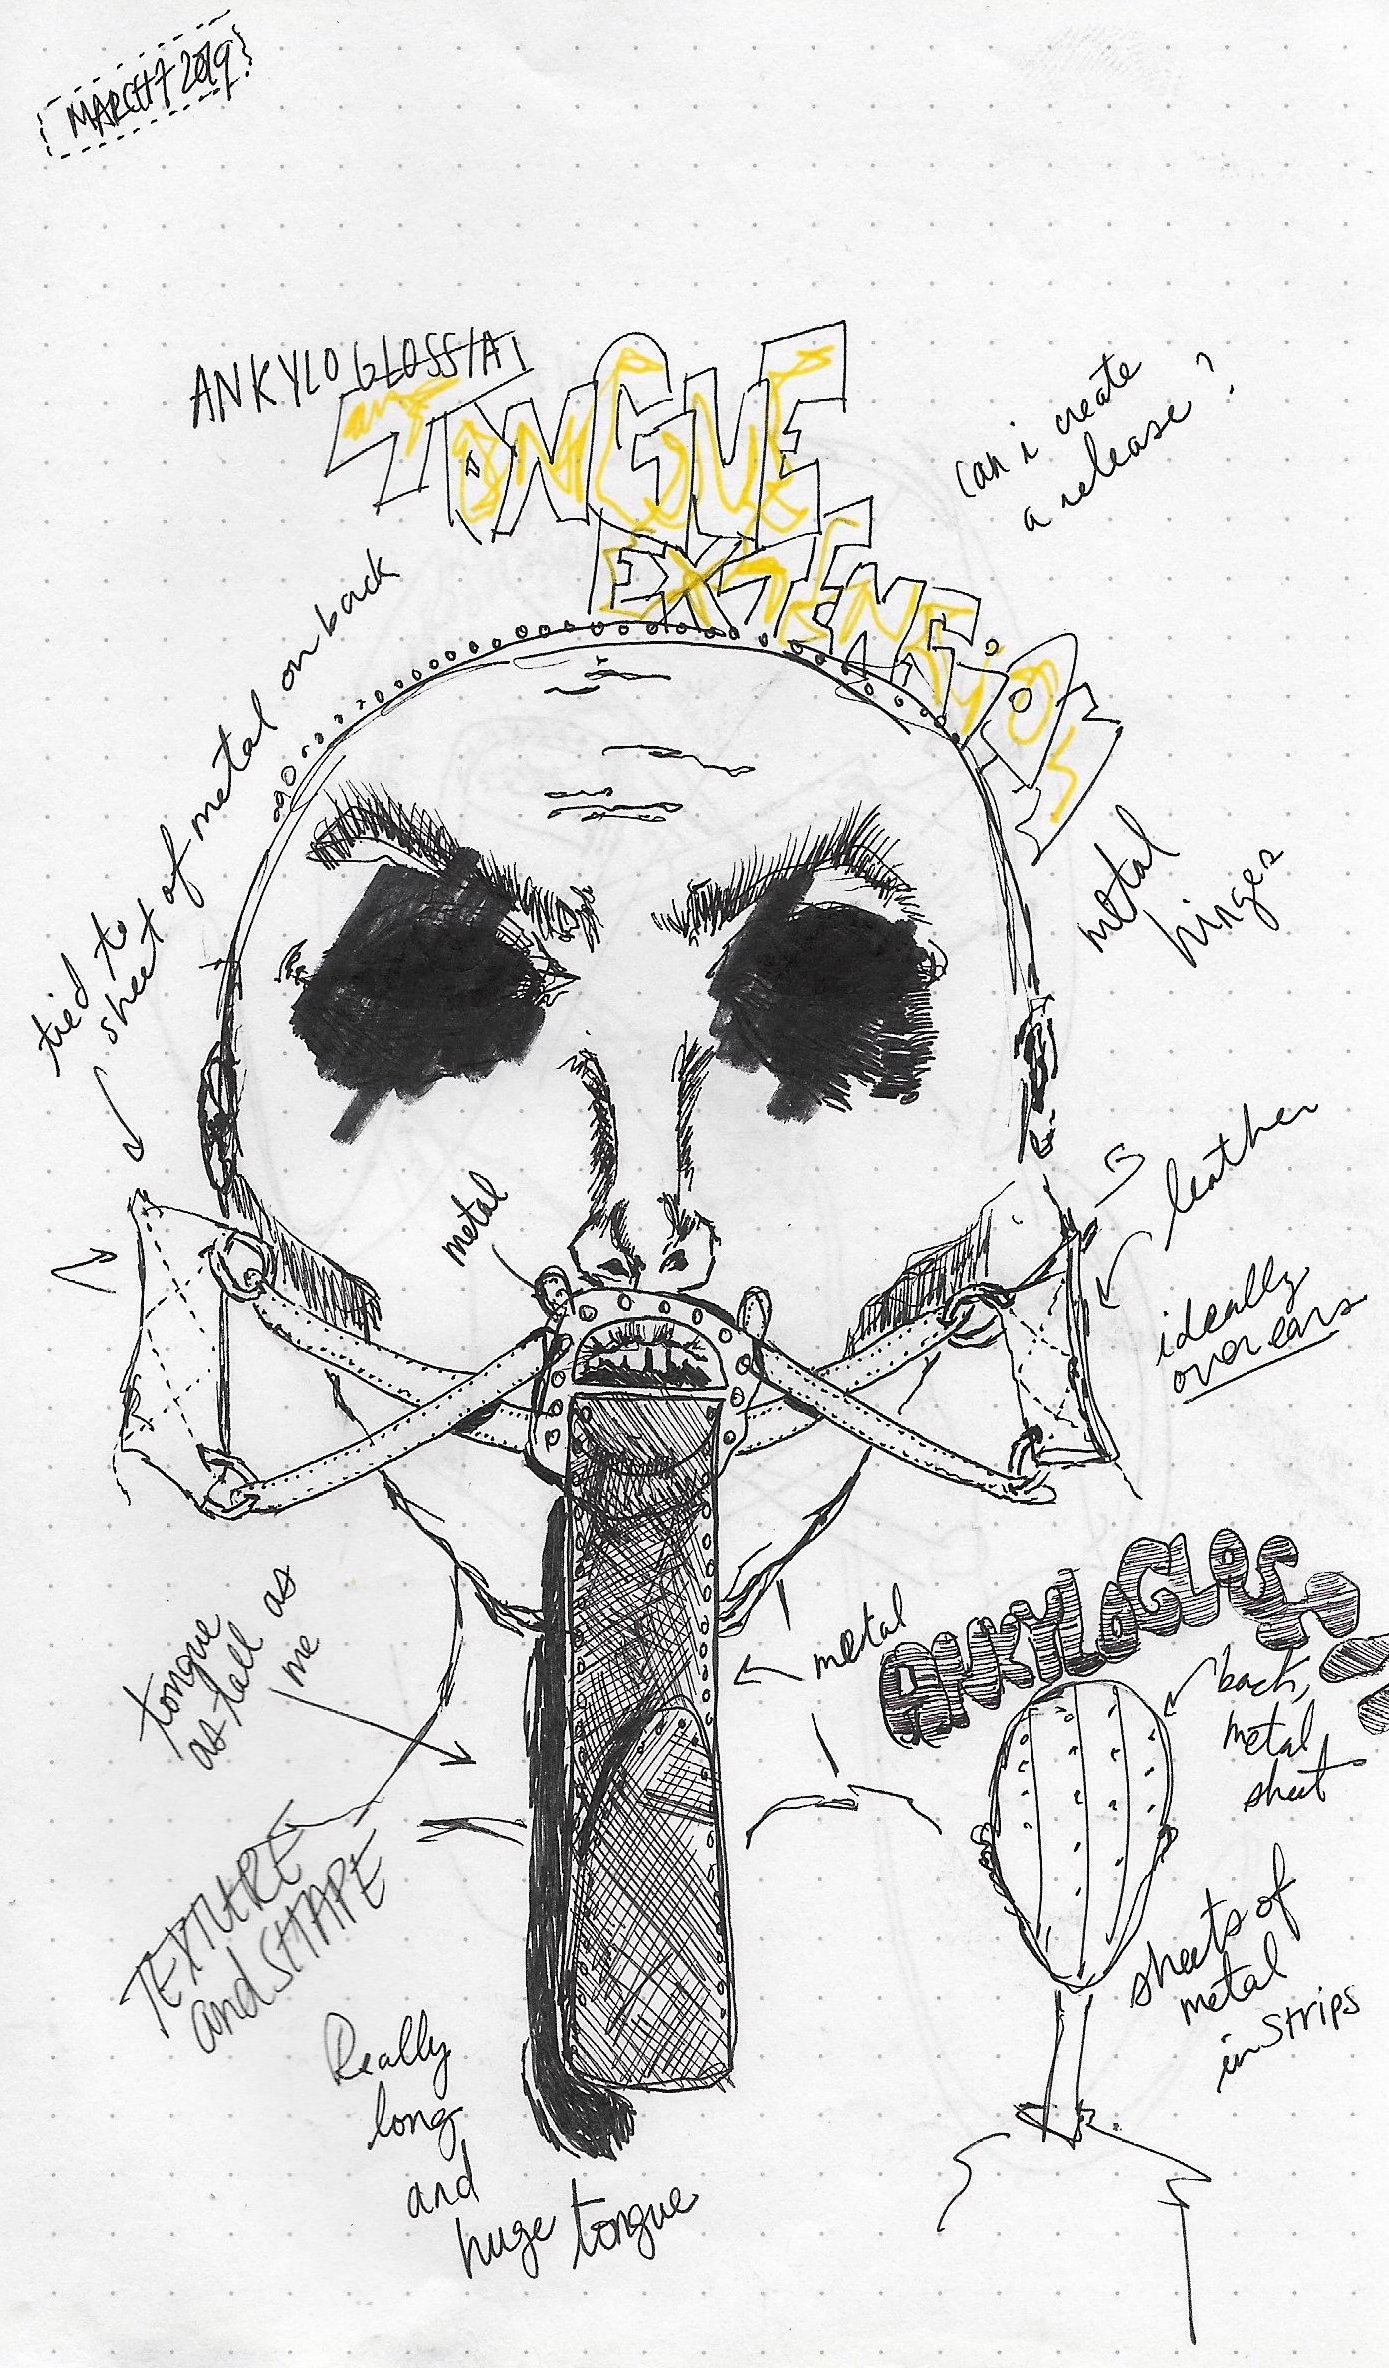 MARCH 7 2019
ANKYLOGLOSSIA
TONGUE
EXTENSION
can i create
a release?
tied to
sheet of metal on back
metal
hinges
metal
leather
ideally
over ears
tongue
as tall as
me
metal
back,
metal
sheet
TEXTURE
and SHAPE
sheets of
metal
in strips
Really
long
and
huge tongue